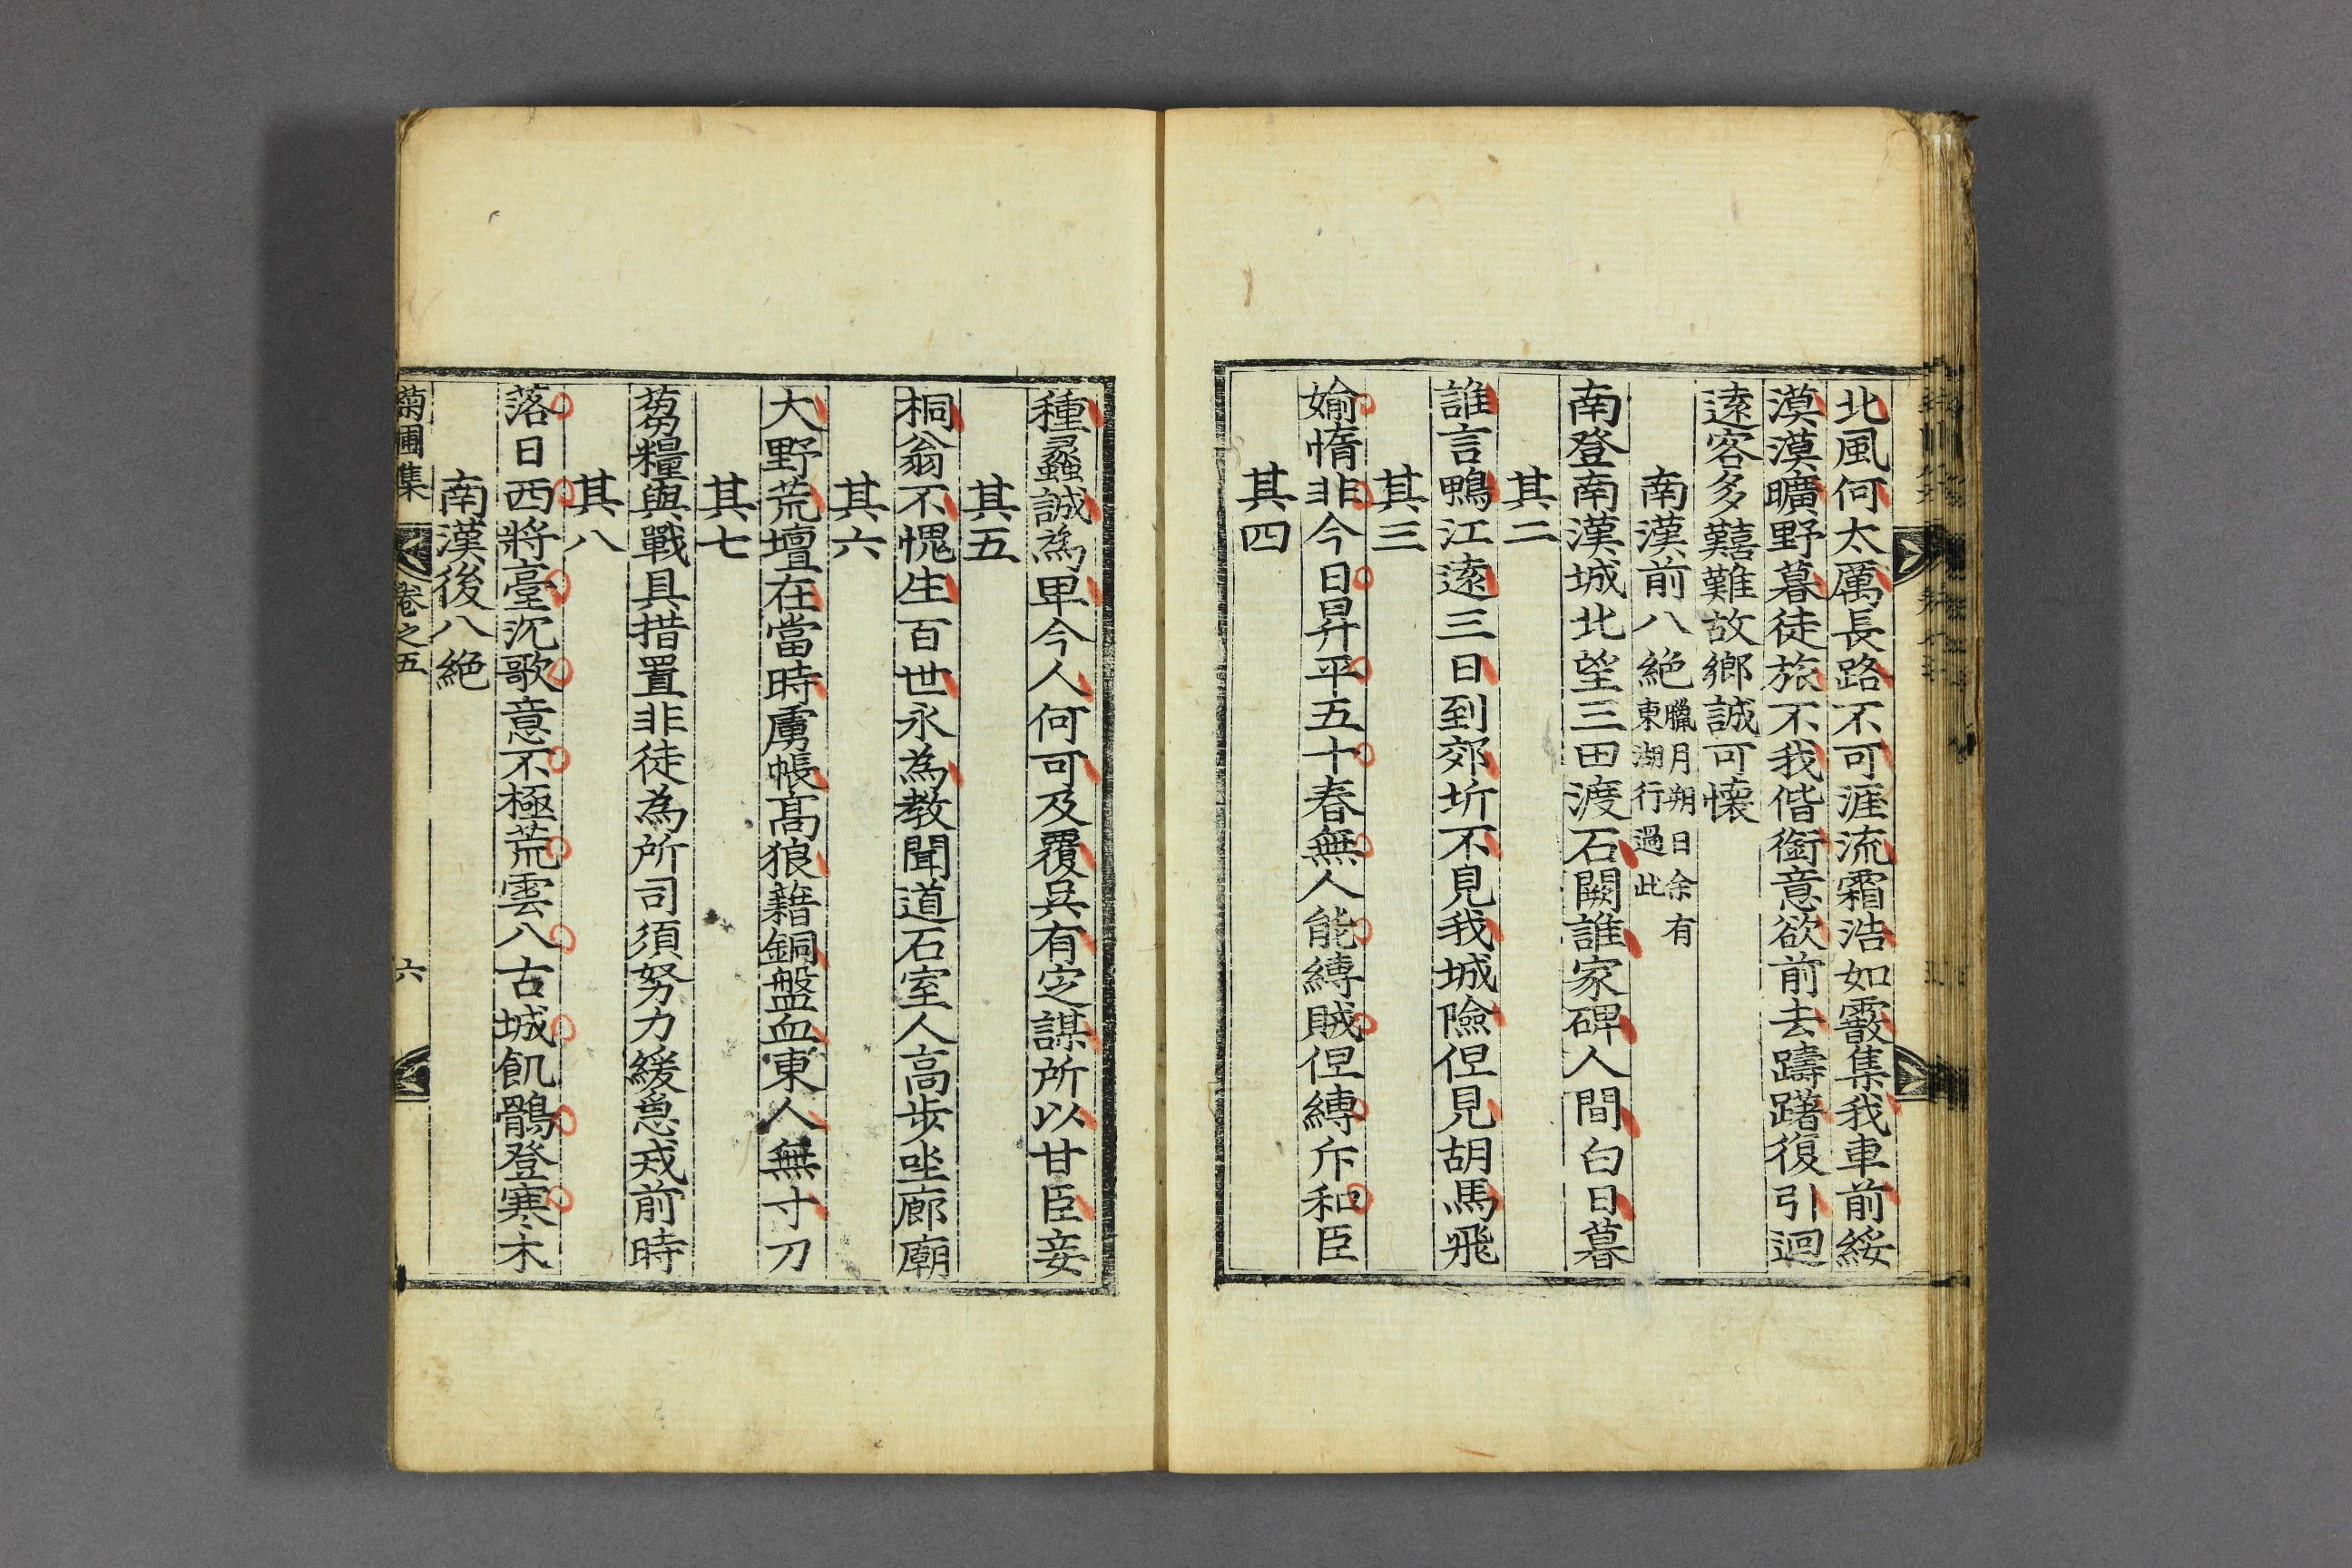 北風何太厲長路不可涯流霜浩如霰集我車前綏
漠漠曠野暮徒旅不我偕銜意欲前去躊躇復引迴
遠客多艱難故鄉誠可懷
南漢前八絶臘月朔日余有
東湖行過此
南登南漢城北望三田渡石闕誰家碑人間白日暮
其二
誰言鴨江遠三日到郊圻不見我城險但見胡馬飛
其三
婾惰非今日昇平五十春無人能縛賊但縛斥和臣
其四
種蠡誠爲卑今人何可及覆吳有定謀所以甘臣妾
其五
桐翁不愧生百世永為教聞道石室人高步坐廊廟
其六
大野荒壇在當時虜帳高狼藉銅盤血東人無寸刀
其七
芻糧與戰具措置非徒為所司須努力緩急戒前時
其八
落日西將臺沉歌意不極荒雲八古城飢鶻登寒木
南漢後八絶
菊圃集 卷之五 六